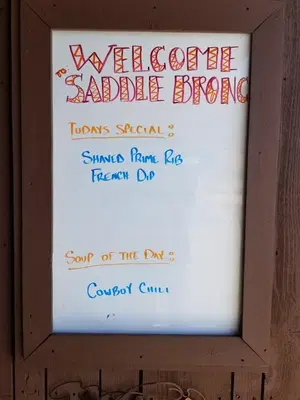 WELCOME
TO SADDLE BRONC
TODAYS SPECIAL:
SHAVED PRIME RIB
FRENCH DIP
SOUP OF THE DAY:
COWBOY CHILI